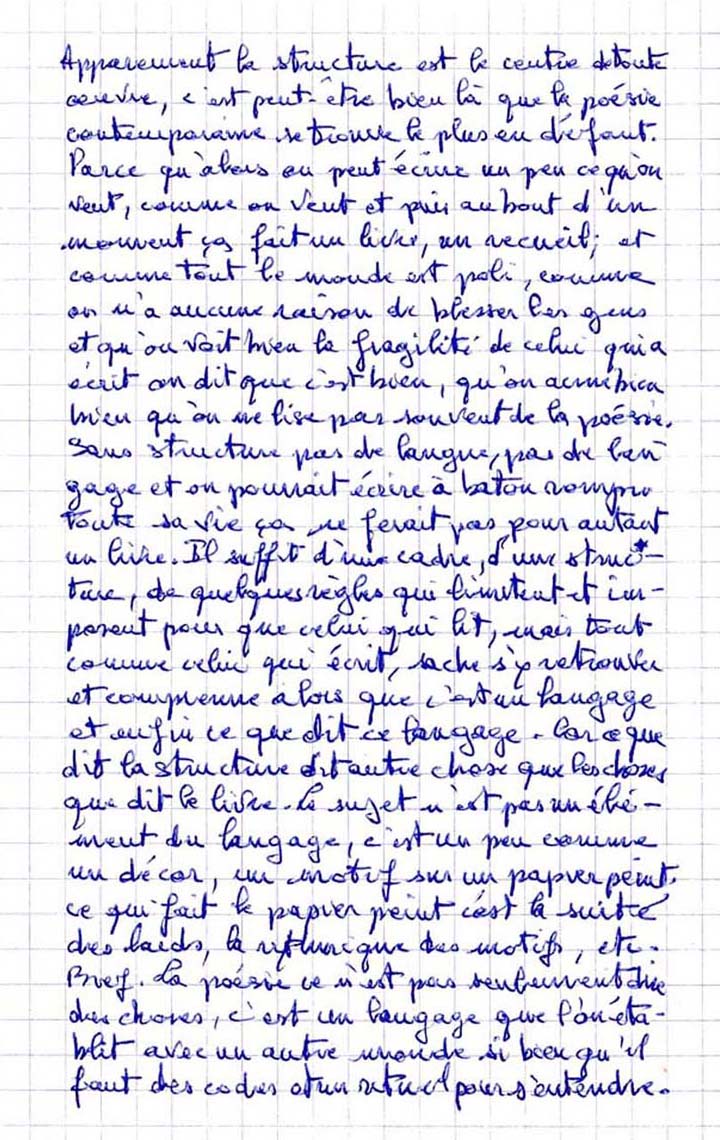 Apparement la structure est le centre de toute
oeuvre, c'est peut-être bien là que la poésie
contemporaine se trouve le plus en défaut.
Parce qu'alors on peut écrire un peu ce qu'on
veut, comme on veut et puis au bout d'un
moment ça fait un livre, un recueil; et
comme tout le monde est poli, comme
on n'a aucune raison de blesser les gens
et qu'on voit bien la fragilité de celui qui a
écrit on dit que c'est bien, qu'on aime bien
bien qu'on ne lise pas souvent de la poésie.
Sans structure pas de langue, pas de lan
gage et on pourrait écrire à baton rompu
toute sa vie ça ne ferait pas pour autant
un livre. Il suffit d'un cadre, d'une struc-
ture, de quelques règles qui limitent et im-
posent pour que celui qui lit, mais tout
comme celui qui écrit, sache s'y retrouver
et comprenne alors que c'est un langage
et enfin ce que dit ce langage. Car ce que
dit la structure est autre chose que les choses
que dit le livre. Le sujet n'est pas un élé-
ment du langage, c'est un peu comme
un décor, un motif sur un papier peint.
ce qui fait le papier peint c'est la suite
des laids, la rythmique des motifs, etc.
Bref. La poésie ce n'est pas seulement dire
des choses, c'est un langage que l'on éta-
blit avec un autre monde si bien qu'il
faut des codes et un rituel pour s'entendre.